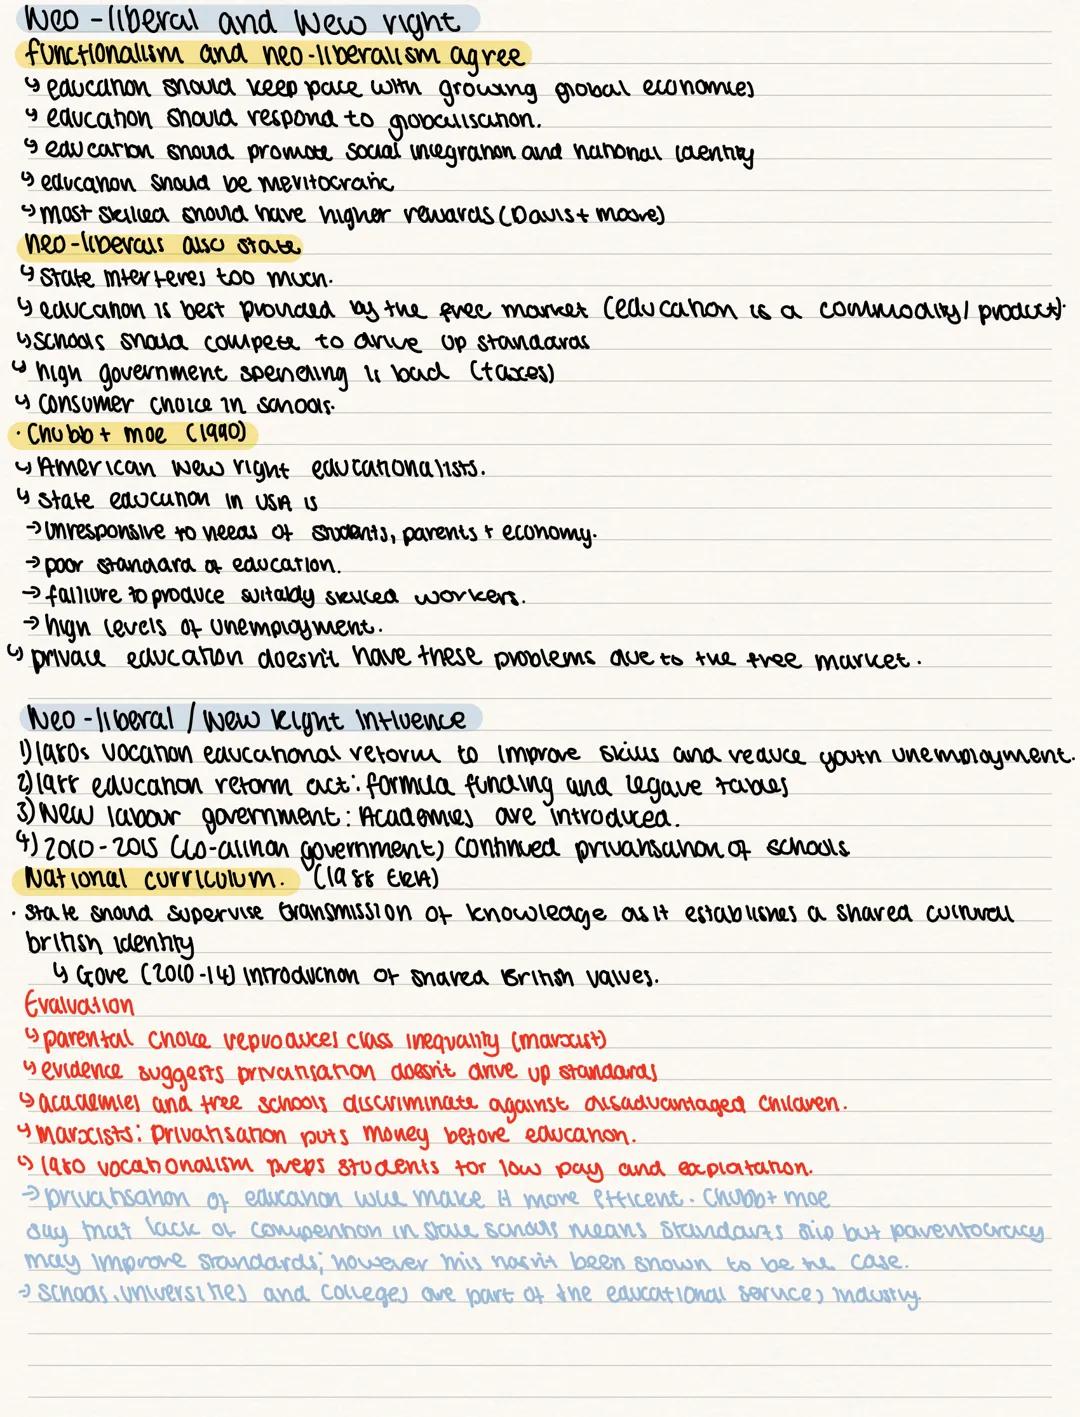 Neo-liberal and New right
functionalism and neo-liberalism agree
↳ education should keep pace with growing global economies
↳ education should respond to globalisation.
↳ education should promote social integration and national identity
↳ education should be meritocratic
↳ most skilled should have higher rewards (Davis + moore)
neo-liberals also state
↳ State interferes too much.
↳ education is best provided by the free market (education is a commodity/ product).
↳ schools should compete to drive up standards
↳ high government spending is bad (taxes)
↳ consumer choice in schools.
· Chubb + moe (1990)
↳ American New right educationalists.
↳ state education in USA is
→ unresponsive to needs of students, parents + economy.
→ poor standard of education.
→ failiure to produce suitably skilled workers.
→ high levels of unemployment.
↳ private education doesn't have these problems due to the free market.
Neo-liberal / New Right Influence
1) 1980s vocation educational reform to improve skills and reduce youth unemployment.
2) 1988 education reform act: formula funding and legaue tables
3) New labour government: Academies are introduced.
4) 2010-2015 (co-alition government) continued privatisation of schools
National curriculum. (1988 ERA)
· State should supervise transmission of knowledge as it establishes a shared cultural
british identity
↳ Gove (2010-14) introduction of shared British values.
Evaluation
↳ parental choice reproduces class inequality (marxist)
↳ evidence suggests privatisation doesn't drive up standards
↳ academies and free schools discriminate against disadvantaged children.
↳ Marxists: privatisation puts money before education.
↳ 1980 vocationalism preps students for low pay and exploitation.
→ privatisation of education will make it more efficent. Chubb + moe
say that lack of competition in state schools means standards slip but parentocracy
may improve standards; however this hasn't been shown to be the case.
→ schools, universities and colleges are part of the educational services industry.